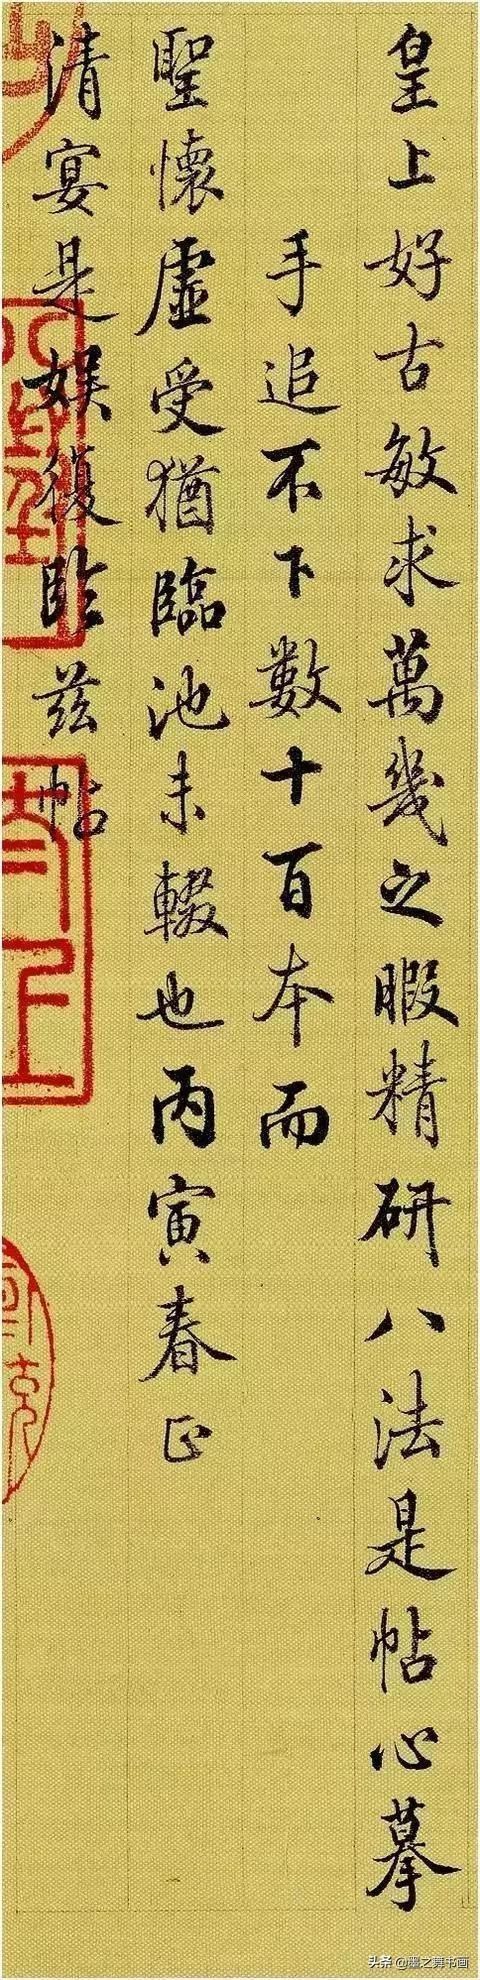 皇上好古敏求萬幾之暇精研八法是帖心摹
手追不下數十百本而
聖懷虛受猶臨池未輟也丙寅春正
清宴是娛復臨茲帖
头条 @墨之舞书画